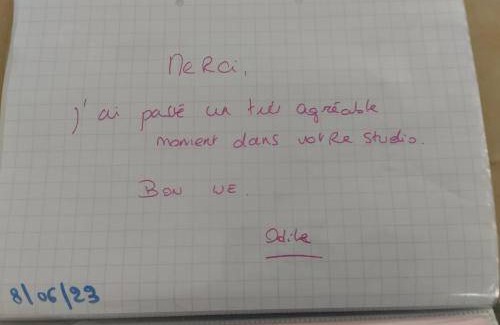 Merci,
j'ai passé un très agréable
moment dans votre studio.
Bon WE.
Odile
8/06/23